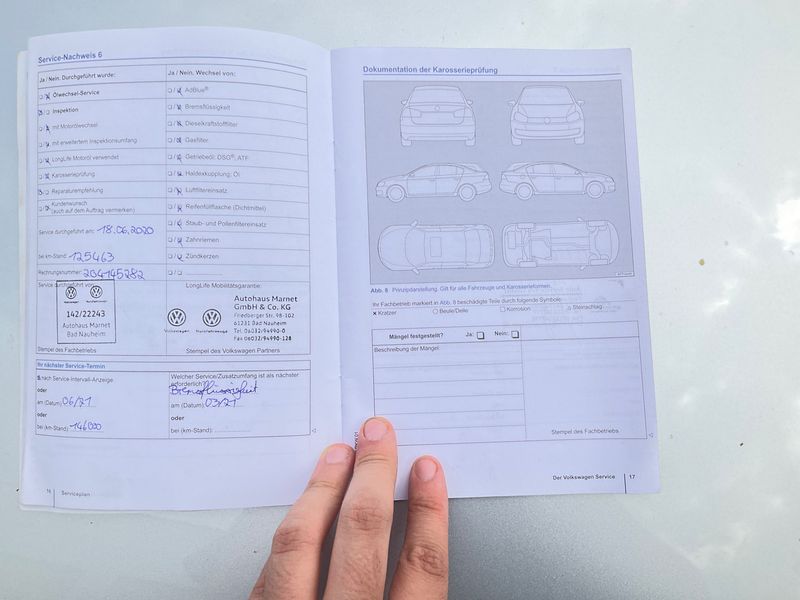 Service-Nachweis 6
Ja / Nein. Durchgeführt wurde:
Ölwechsel-Service
Inspektion
mit Motorölwechsel
mit erweitertem Inspektionsumfang
LongLife Motoröl verwendet
Karosserieprüfung
Reparaturempfehlung
Kundenwunsch
(auch auf dem Auftrag vermerken)
Ja / Nein. Wechsel von:
AdBlue®
Bremsflüssigkeit
Dieselkraftstofffilter
Gasfilter
Getriebeöl: DSG®, ATF
Haldexkupplung: Öl
Luftfiltereinsatz
Reifenfüllflasche (Dichtmittel)
Staub- und Pollenfiltereinsatz
Zahnriemen
Zündkerzen
Service durchgeführt am: 18.06.2020
bei km-Stand: 125463
Rechnungsnummer: 204145282
Service durchgeführt von:
142/22243
Autohaus Marnet
Bad Nauheim
Stempel des Fachbetriebs
LongLife Mobilitätsgarantie:
Autohaus Marnet
GmbH & Co. KG
Friedberger Str. 98-102
61231 Bad Nauheim
Tel. 06032/94990-0
Fax 06032/94990-128
Volkswagen
Nutzfahrzeuge
Stempel des Volkswagen Partners
Ihr nächster Service-Termin
nach Service-Intervall-Anzeige
oder
am (Datum) 06/21
oder
bei (km-Stand) 146000
Welcher Service/Zusatzumfang ist als nächster
erforderlich?
Bremsflüssigkeit
am (Datum) 03/21
oder
bei (km-Stand):
16 Serviceplan
Dokumentation der Karosserieprüfung
Abb. 8 Prinzipdarstellung. Gilt für alle Fahrzeuge und Karosserieformen.
Ihr Fachbetrieb markiert in Abb. 8 beschädigte Teile durch folgende Symbole:
x Kratzer
○ Beule/Delle
□ Korrosion
△ Steinschlag
Mängel festgestellt? Ja: Nein:
Beschreibung der Mängel:
Stempel des Fachbetriebs
Der Volkswagen Service 17